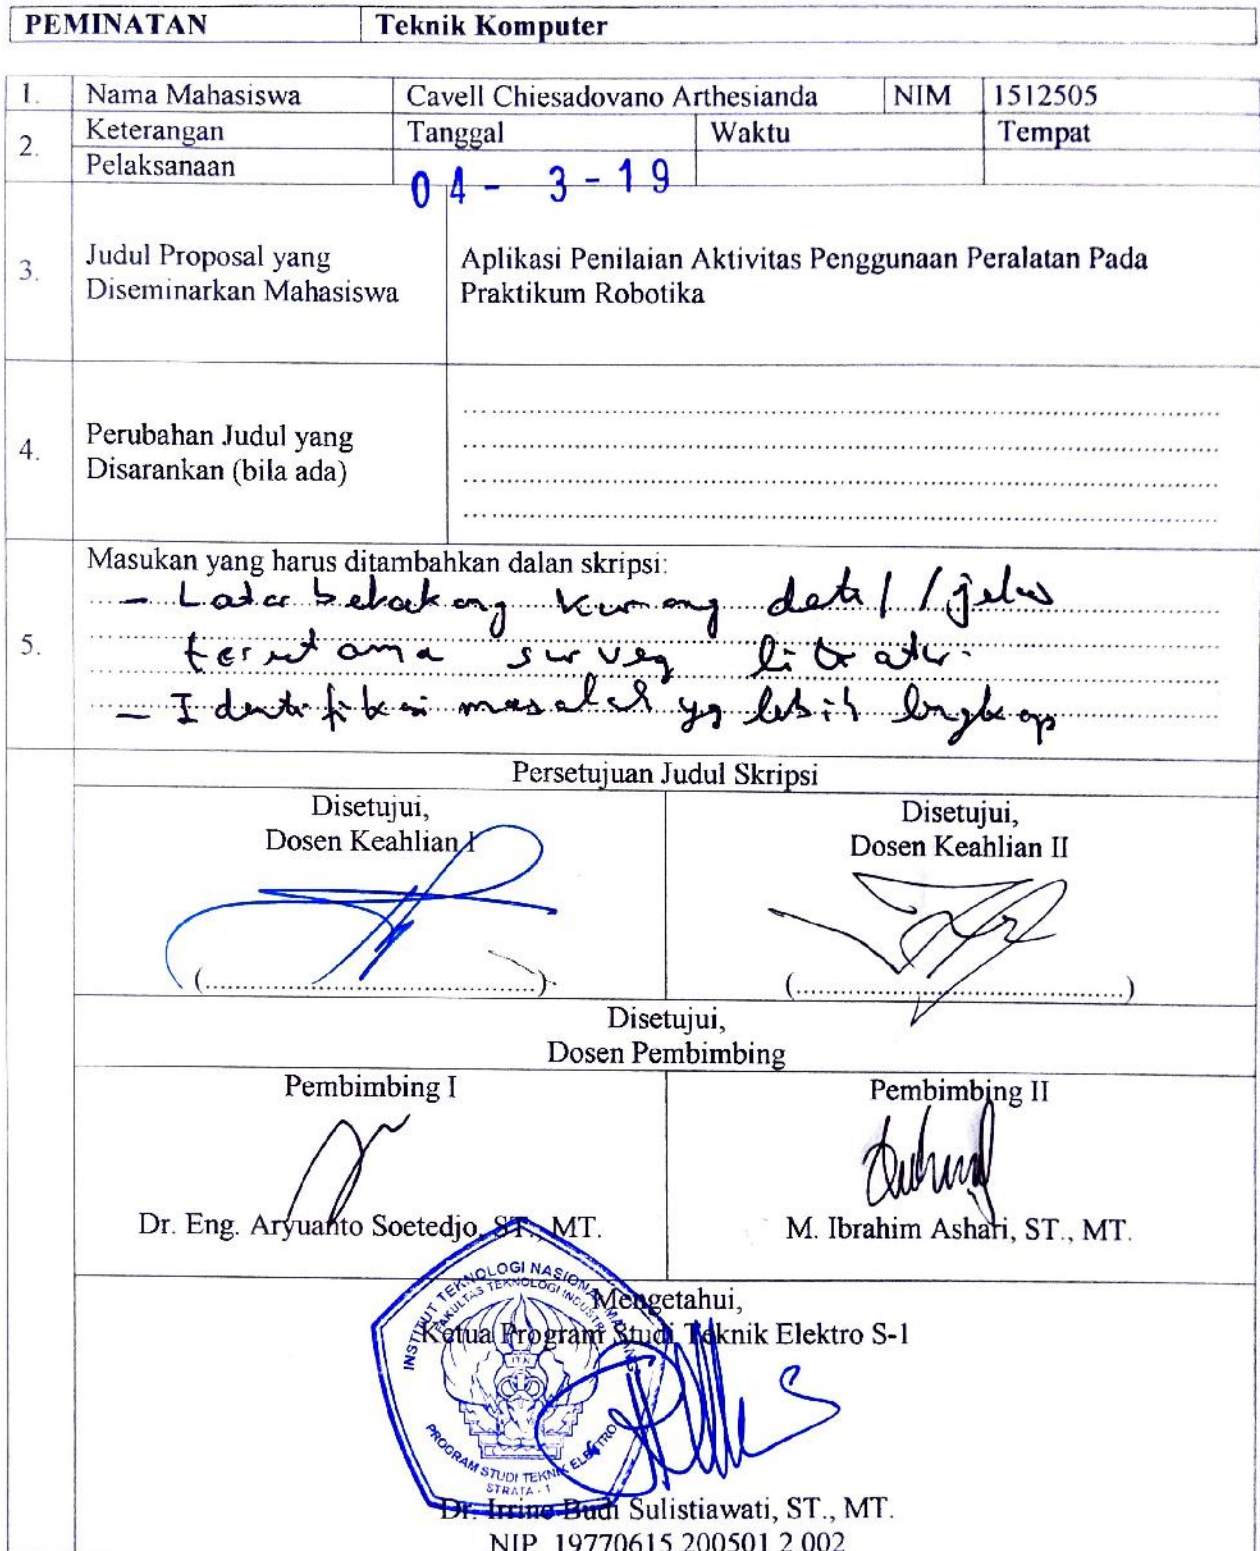 PEMINATAN Teknik Komputer
1. Nama Mahasiswa Cavell Chiesadovano Arthesianda NIM 1512505
2. Keterangan Pelaksanaan Tanggal Waktu Tempat
04 - 3 - 19
3. Judul Proposal yang Diseminarkan Mahasiswa
Aplikasi Penilaian Aktivitas Penggunaan Peralatan Pada
Praktikum Robotika
4. Perubahan Judul yang
Disarankan (bila ada)
5. Masukan yang harus ditambahkan dalan skripsi:
- Latar belakang kurang detail / jelas
terutama survey literatur.
- Identifikasi masalah yg lebih lengkap
Persetujuan Judul Skripsi
Disetujui,
Dosen Keahlian I
Disetujui,
Dosen Keahlian II
(....................................)
(....................................)
Disetujui,
Dosen Pembimbing
Pembimbing I
Dr. Eng. Aryuanto Soetedjo, ST., MT.
Pembimbing II
M. Ibrahim Ashari, ST., MT.
Mengetahui,
Ketua Program Studi Teknik Elektro S-1
INSTITUT TEKNOLOGI NASIONAL MALANG
FAKULTAS TEKNOLOGI INDUSTRI
ITN
PROGRAM STUDI TEKNIK ELEKTRO
STRATA - 1
Dr. Irrine Budi Sulistiawati, ST., MT.
NIP. 19770615 200501 2 002